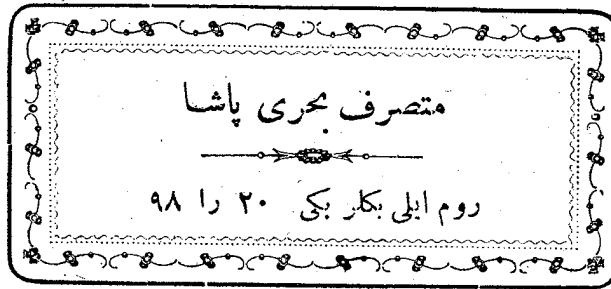 متصرف بحری پاشا
روم ایلی بکلر بکی ۲۰ را ۹۸